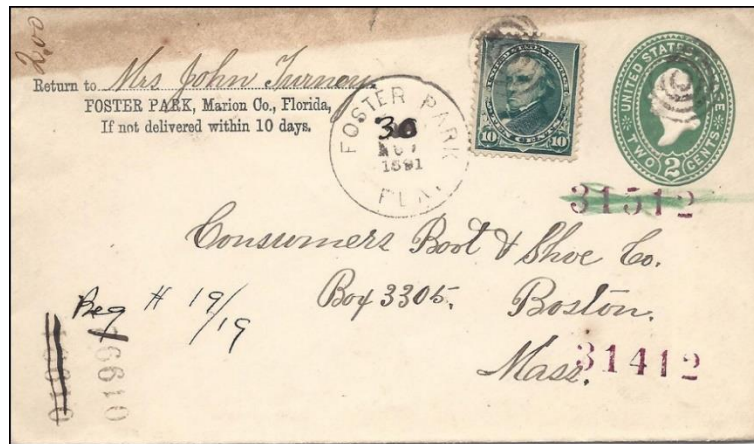 2.00
Return to Mrs John Turney.
FOSTER PARK, Marion Co., Florida,
If not delivered within 10 days.
FOSTER PARK
30
NOV
1891
FLA.
UNITED STATES POSTAGE
10 CENTS 10
UNITED STATES
TWO 2 CENTS
31512
Consumers Boot & Shoe Co.
Box 3305. Boston.
Mass.
Reg # 19/19
31412